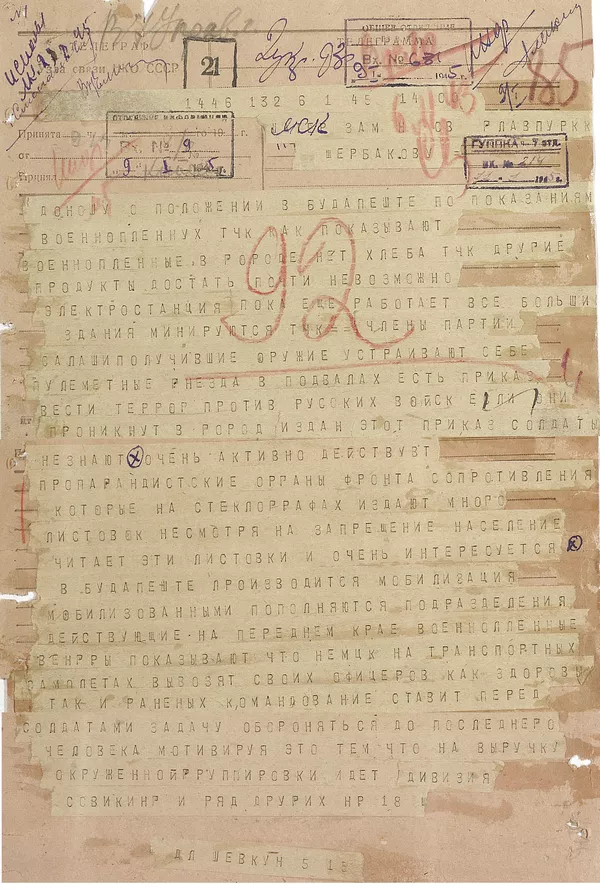 ТЕЛЕГРАФ
ТЕЛЕГРАММА
связи НКО СССР
21
ОБЩЕЕ ОТДЕЛЕНИЕ
Вх. №
1945 г.
1446 132 6 1 45 14 0
Принята
МСК
ЗАМ
ГЛАВПУРКК
ЩЕРБАКОВУ =
от
Принял
Вх. № 9
9 1 1945 г.
92
85
ДОНОШУ О ПОЛОЖЕНИИ В БУДАПЕШТЕ ПО ПОКАЗАНИЯМ
ВОЕННОПЛЕННУХ ТЧК КАК ПОКАЗЫВАЮТ
ВОЕННОПЛЕННЫЕ В ГОРОДЕ НЕТ ХЛЕБА ТЧК ДРУГИЕ
ПРОДУКТЫ ДОСТАТЬ ПОЧТИ НЕВОЗМОЖНО
ЭЛЕКТРОСТАНЦИЯ ПОКА ЕЩЕ РАБОТАЕТ ВСЕ БОЛЬШИЕ
ЗДАНИЯ МИНИРУЮТСЯ ТЧК = ЧЛЕНЫ ПАРТИИ
САЛАШИПОЛУЧИВШИЕ ОРУЖИЕ УСТРАИВАЮТ СЕБЕ
ПУЛЕМЕТНЫЕ ГНЕЗДА В ПОДВАЛАХ ЕСТЬ ПРИКАЗ
ВЕСТИ ТЕРРОР ПРОТИВ РУССКИХ ВОЙСК ЕСЛИ ОНИ
ПРОНИКНУТ В ГОРОД ИЗДАН ЭТОТ ПРИКАЗ СОЛДАТЫ
НЕЗНАЮТ ОЧЕНЬ АКТИВНО ДЕЙСТВУВТ
ПРОПАРАНДИСТСКИЕ ОРГАНЫ ФРОНТА СОПРОТИВЛЕНИЯ
КОТОРЫЕ НА СТЕКЛОГРАФАХ ИЗДАЮТ МНОГО
ЛИСТОВОК НЕСМОТРЯ НА ЗАПРЕЩЕНИЕ НАСЕЛЕНИЕ
ЧИТАЕТ ЭТИ ЛИСТОВКИ И ОЧЕНЬ ИНТЕРЕСУЕТСЯ
В БУДАПЕШТЕ ПРОИЗВОДИТСЯ МОБИЛИЗАЦИЯ
МОБИЛИЗОВАННЫМИ ПОПОЛНЯЮТСЯ ПОДРАЗДЕЛЕНИЯ
ДЕЙСТВУЮЩИЕ НА ПЕРЕДНЕМ КРАЕ ВОЕННОЛЛЕННЫЕ
ВЕНГРЫ ПОКАЗЫВАЮТ ЧТО НЕМЦК НА ТРАНСПОРТНЫХ
САМОЛЕТАХ ВЫВОЗЯТ СВОИХ ОФИЦЕРОВ КАК ЗДОРОВЫ
ТАК И РАНЕНЫХ КОМАНДОВАНИЕ СТАВИТ ПЕРЕД
СОЛДАТАМИ ЗАДАЧУ ОБОРОНЯТЬСЯ ДО ПОСЛЕДНЕГО
ЧЕЛОВЕКА МОТИВИРУЯ ЭТО ТЕМ ЧТО НА ВЫРУЧКУ
ОКРУЖЕННОЙГРУППИРОВКИ ИДЕТ ДИВИЗИЯ
СОВИКИНГ И РЯД ДРУГИХ НР 18
ДЛ ШЕВКУН 5 15